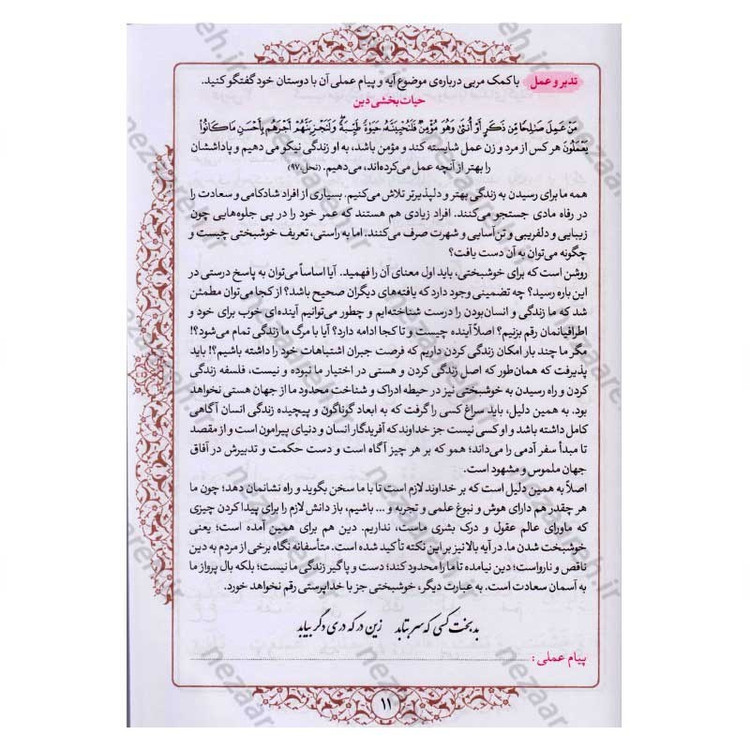 تدبر و عمل با کمک مربی درباره‌ی موضوع آیه و پیام عملی آن با دوستان خود گفتگو کنید.
حیات بخشی دین
مَنْ عَمِلَ صَالِحًا مِّن ذَكَرٍ أَوْ أُنثَىٰ وَهُوَ مُؤْمِنٌ فَلَنُحْيِيَنَّهُ حَيَوٰةً طَيِّبَةً وَلَنَجْزِيَنَّهُمْ أَجْرَهُم بِأَحْسَنِ مَا كَانُوا
يَعْمَلُونَ هر کس از مرد و زن عمل شایسته کند و مؤمن باشد، به او زندگی نیکو می دهیم و پاداششان
را بهتر از آنچه عمل می‌کرده‌اند، می‌دهیم. (نحل ۹۷)
همه ما برای رسیدن به زندگی بهتر و دلپذیرتر تلاش می‌کنیم. بسیاری از افراد شادکامی و سعادت را
در رفاه مادی جستجو می‌کنند. افراد زیادی هم هستند که عمر خود را در پی جلوه‌هایی چون
زیبایی و دلفریبی و تن آسایی و شهرت صرف می‌کنند. اما به راستی، تعریف خوشبختی چیست و
چگونه می‌توان به آن دست یافت؟
روشن است که برای خوشبختی، باید اول معنای آن را فهمید. آیا اساساً می‌توان به پاسخ درستی در
این باره رسید؟ چه تضمینی وجود دارد که یافته‌های دیگران صحیح باشد؟ از کجا می‌توان مطمئن
شد که ما زندگی و انسان‌بودن را درست شناخته‌ایم و چطور می‌توانیم آینده‌ای خوب برای خود و
اطرافیانمان رقم بزنیم؟ اصلاً آینده چیست و تا کجا ادامه دارد؟ آیا با مرگ ما زندگی تمام می‌شود؟!
مگر ما چند بار امکان زندگی کردن داریم که فرصت جبران اشتباهات خود را داشته باشیم؟! باید
پذیرفت که همان‌طور که اصل زندگی کردن و هستی در اختیار ما نبوده و نیست، فلسفه زندگی
کردن و راه رسیدن به خوشبختی نیز در حیطه ادراک و شناخت محدود ما از جهان هستی نخواهد
بود. به همین دلیل، باید سراغ کسی را گرفت که به ابعاد گوناگون و پیچیده زندگی انسان آگاهی
کامل داشته باشد و او کسی نیست جز خداوند که آفریدگار انسان و دنیای پیرامون است و از مقصد
تا مبدأ سفر آدمی را می‌داند؛ همو که بر هر چیز آگاه است و دست حکمت و تدبیرش در آفاق
جهان ملموس و مشهود است.
اصلاً به همین دلیل است که بر خداوند لازم است تا با ما سخن بگوید و راه نشانمان دهد؛ چون ما
هر چقدر هم دارای هوش و نبوغ علمی و تجربه و ... باشیم، باز دانش لازم را برای پیدا کردن چیزی
که ماورای عالم عقول و درک بشری ماست، نداریم. دین هم برای همین آمده است؛ یعنی
خوشبخت شدن ما. در آیه بالا نیز بر این نکته تأکید شده است. متأسفانه نگاه برخی از مردم به دین
ناقص و نارواست؛ دین نیامده تا ما را محدود کند؛ دست و پاگیر زندگی ما نیست؛ بلکه بال پرواز ما
به آسمان سعادت است. به عبارت دیگر، خوشبختی جز با خداپرستی رقم نخواهد خورد.
بدبخت کسی که سر بتابد زین در که دری دگر بیابد
پیام عملی :
۱۱
nezaareh.ir